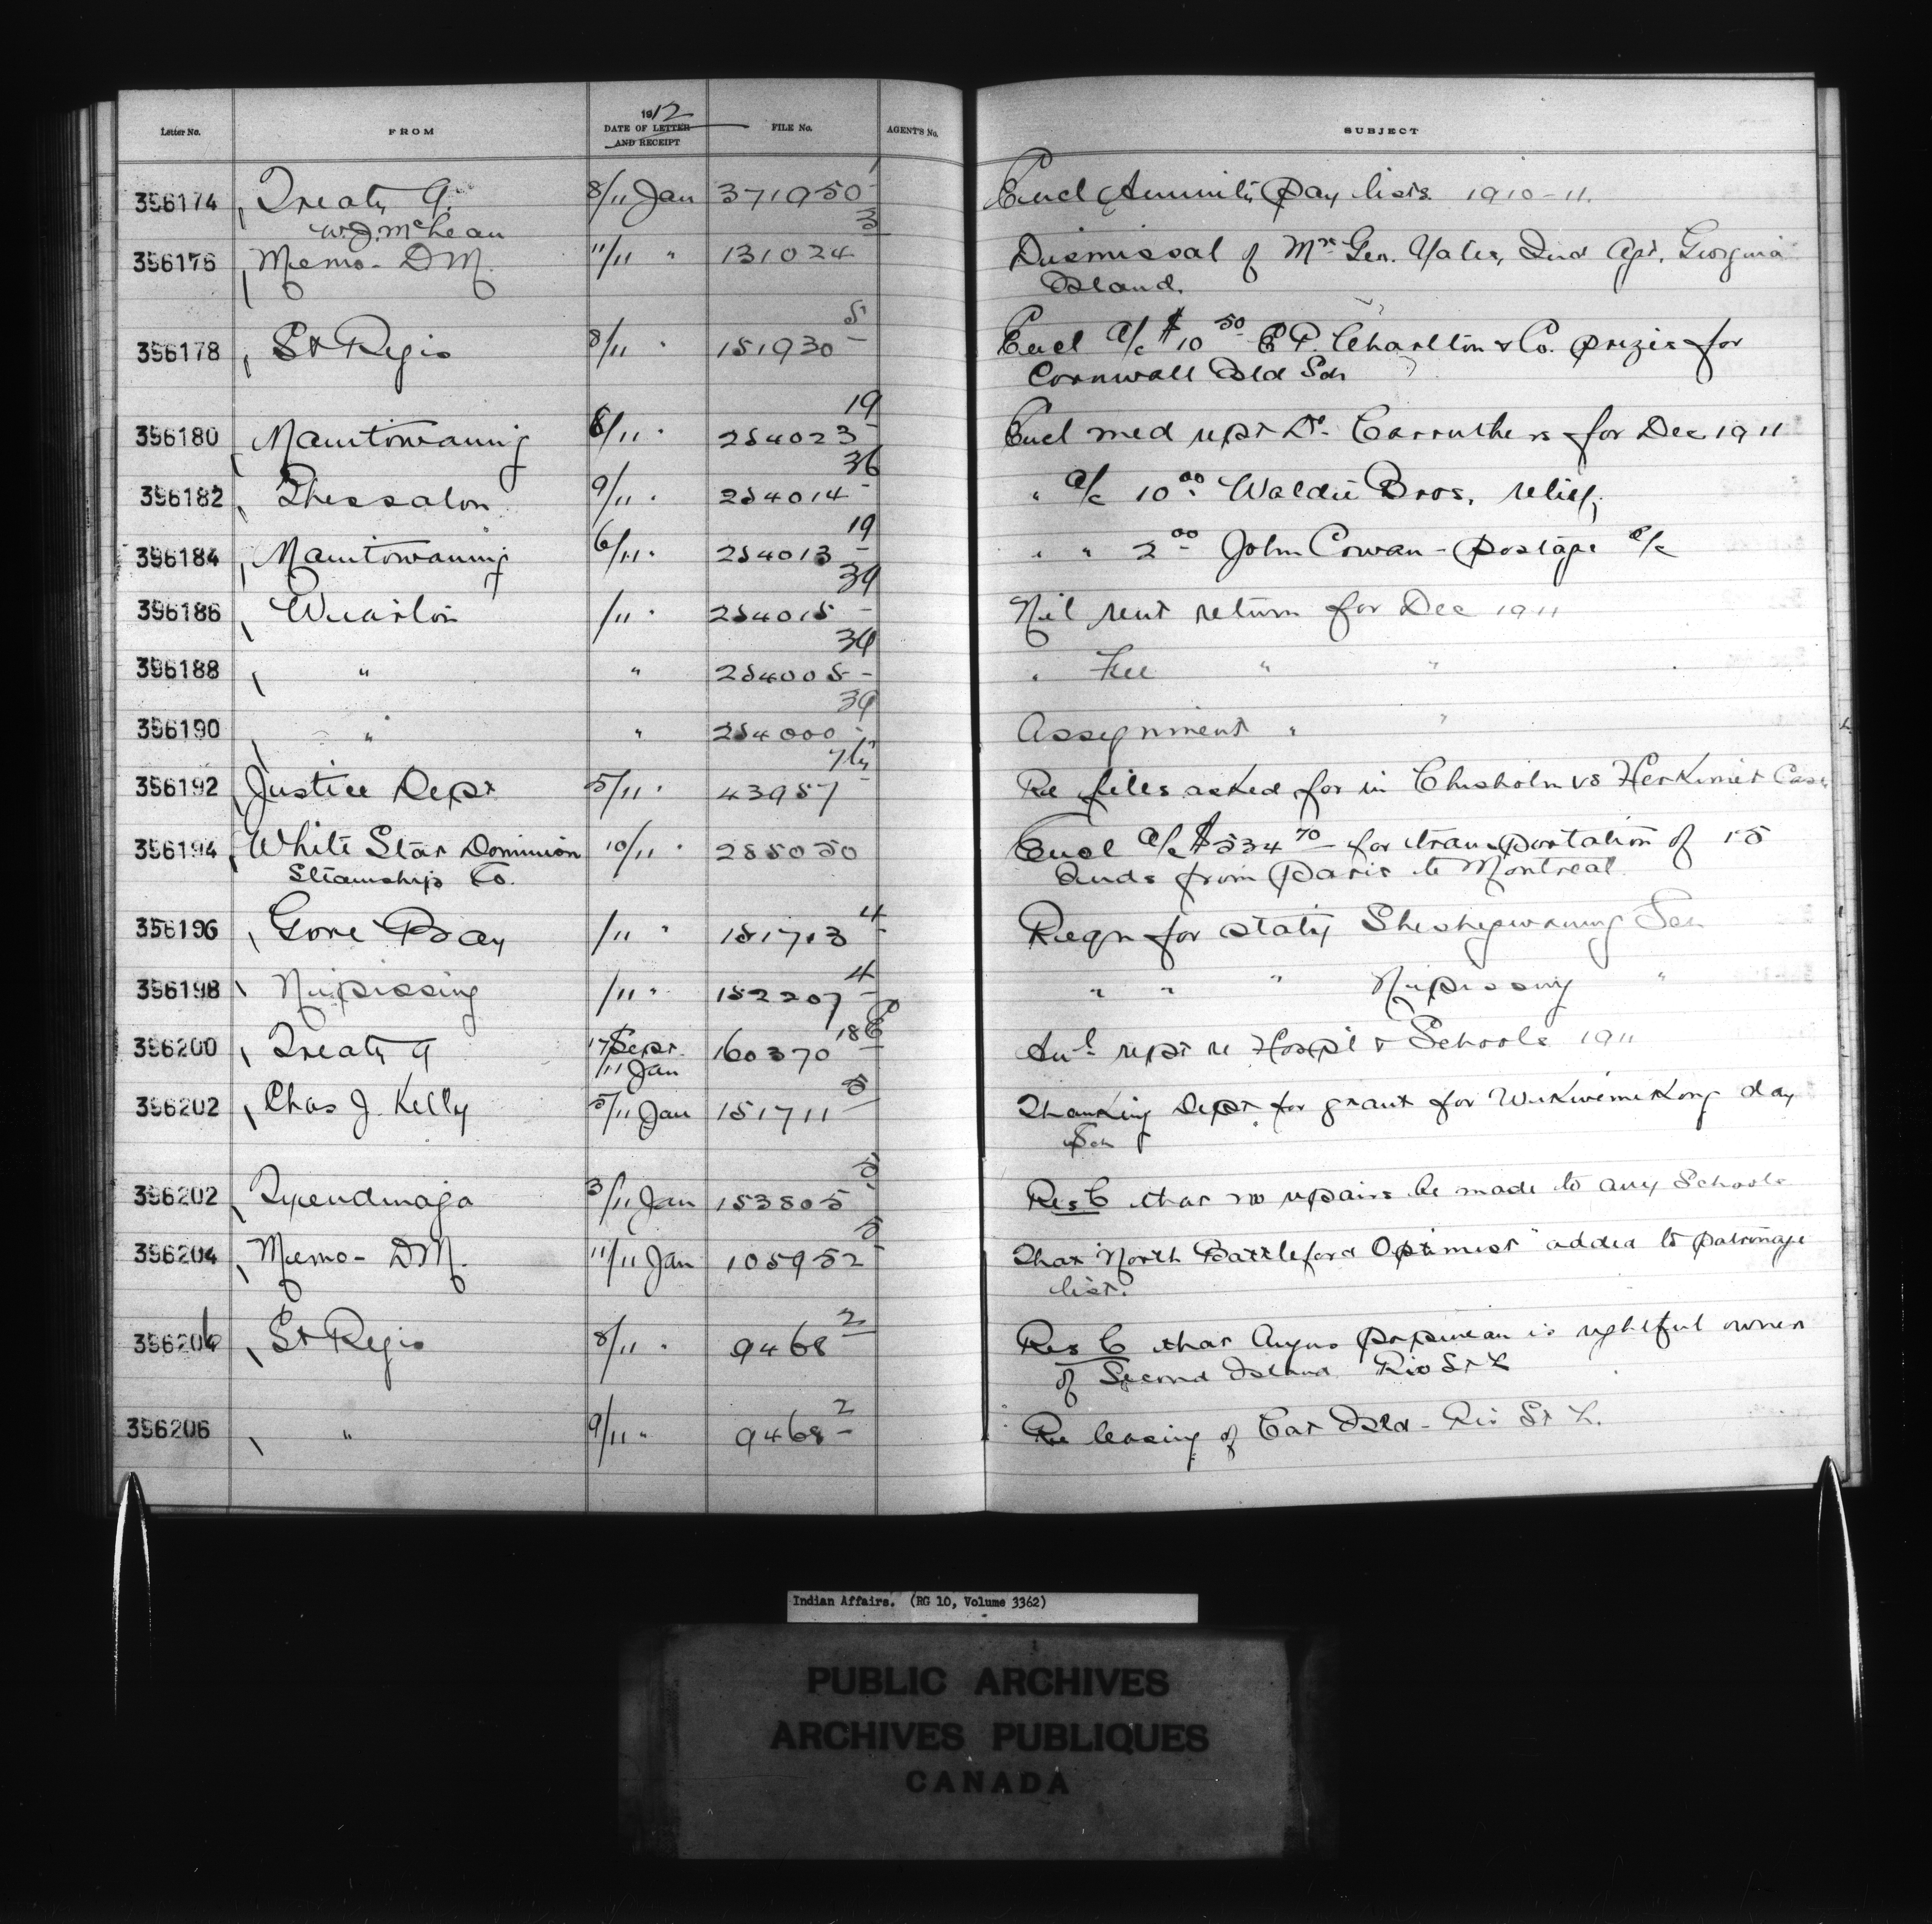 1912
Letter No. FROM DATE OF LETTER AND RECEIPT FILE No. AGENT'S No. SUBJECT
396174 Treaty 9. 8/11 Jan 371950 1 Encl Annuity Pay lists 1910-11.
W.J. McLean
396176 Memo- DM. 11/11 " 131024 3 Dismissal of Mr Geo. Yates, Ind Agt, Georgina
Island.
396178 St Regis 8/11 " 151930 5 Encl a/c $10 50 E P. Charlton & Co. prizes for
Cornwall Isld Sch
396180 Manitowaning 8/11 " 254023 19 Encl med rept Dr. Carruthers for Dec 1911
396182 Thessalon 9/11 " 254014 36 " a/c 10 00 Waldie Bros. relief,
396184 Manitowaning 6/11 " 254013 19 " " 2 00 John Cowan - postage a/c
396186 Wiarton /11 " 254015 39 Nil rent return for Dec 1911
396188 " " 254005 39 " Fee " "
396190 " " 254000 39 Assignment " "
396192 Justice Dept 5/11 " 43957 Re files asked for in Chisholm vs Herkimer Case
396194 White Star Dominion 10/11 " 255050 Encl a/c $534 70 for transportation of 15
Steamship Co. Inds from Paris to Montreal
396196 Gore Bay /11 " 151713 4 Reqn for staty Sheshegwaning Sch
396198 Nipissing /11 " 152207 4 " " " Nipissing "
396200 Treaty 9 17 Sept. 160370 18 Anl rept re Hospl & Schools 1911
/11 Jan
396202 Chas J. Kelly 5/11 Jan 151711 5 Thanking Dept for grant for Wikwemikong day
Sch
396202 Tyendinaga 3/11 Jan 153805 5 Res C that no repairs be made to any Schools
396204 Memo- DM. 11/11 Jan 105952 5 That "North Battleford Optimist" added to patronage
list.
396206 St Regis 8/11 " 9468 2 Res C that Angus Papineau is rightful owner
of Second Island Riv St L
396206 " 9/11 " 9468 2 Re leasing of Cat Isld - Riv St L.
Indian Affairs. (RG 10, Volume 3362)
PUBLIC ARCHIVES
ARCHIVES PUBLIQUES
CANADA